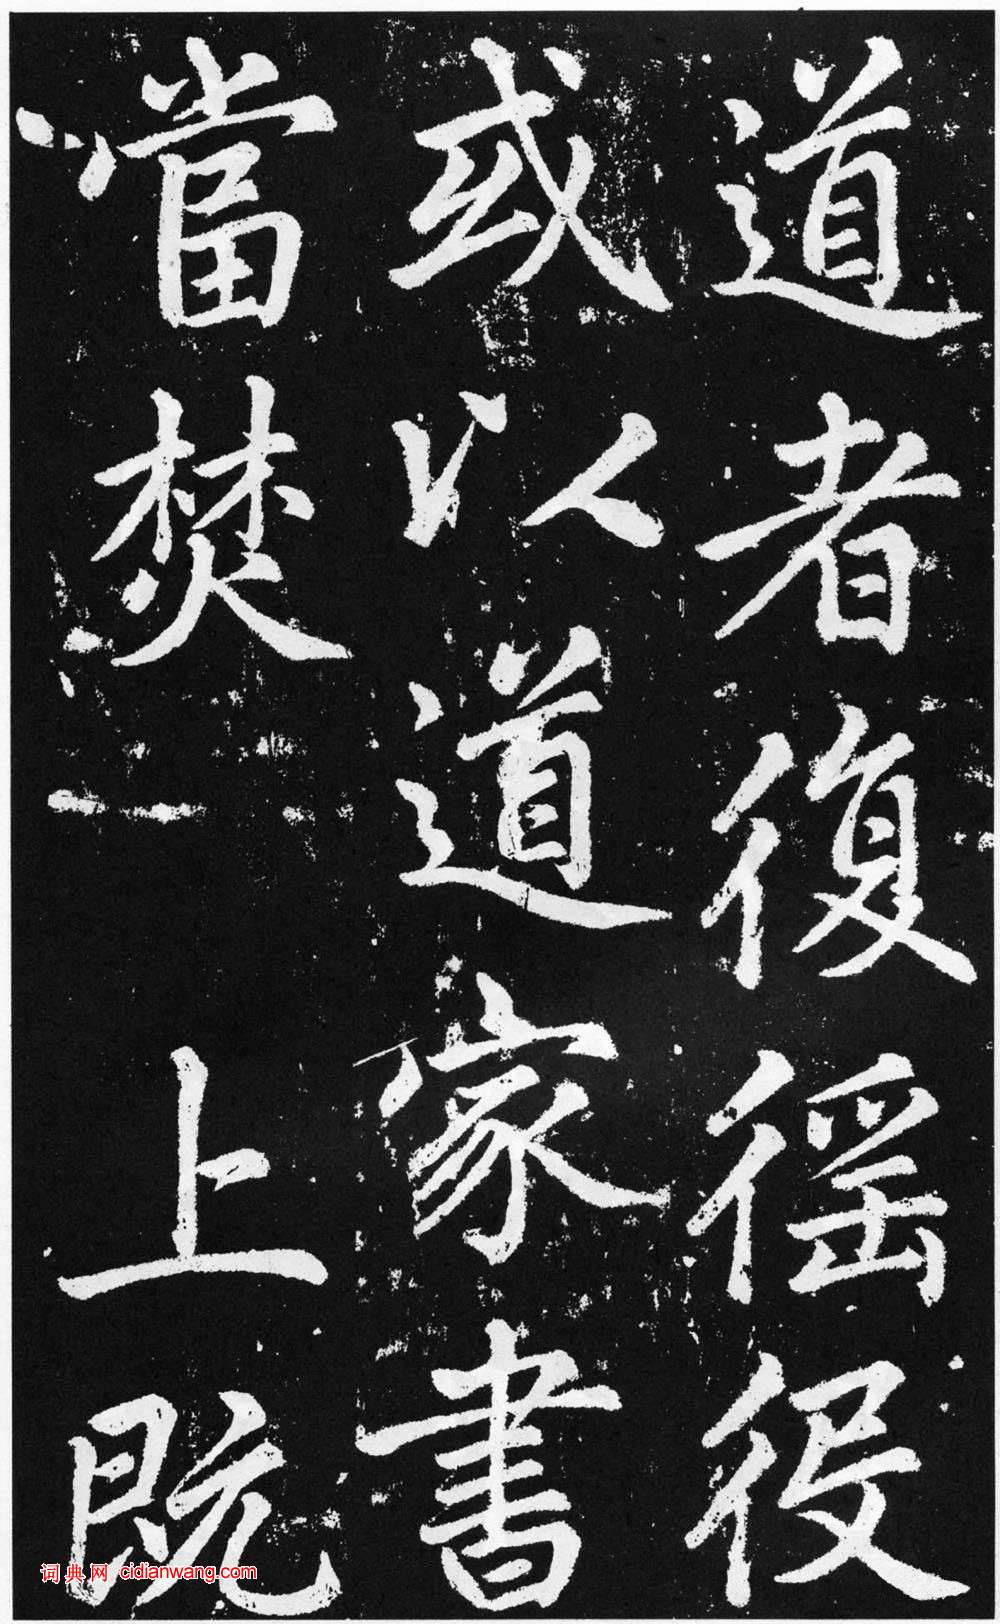 道者復徭役
或以道家書
當焚 上既
词典网 cidianwang.com